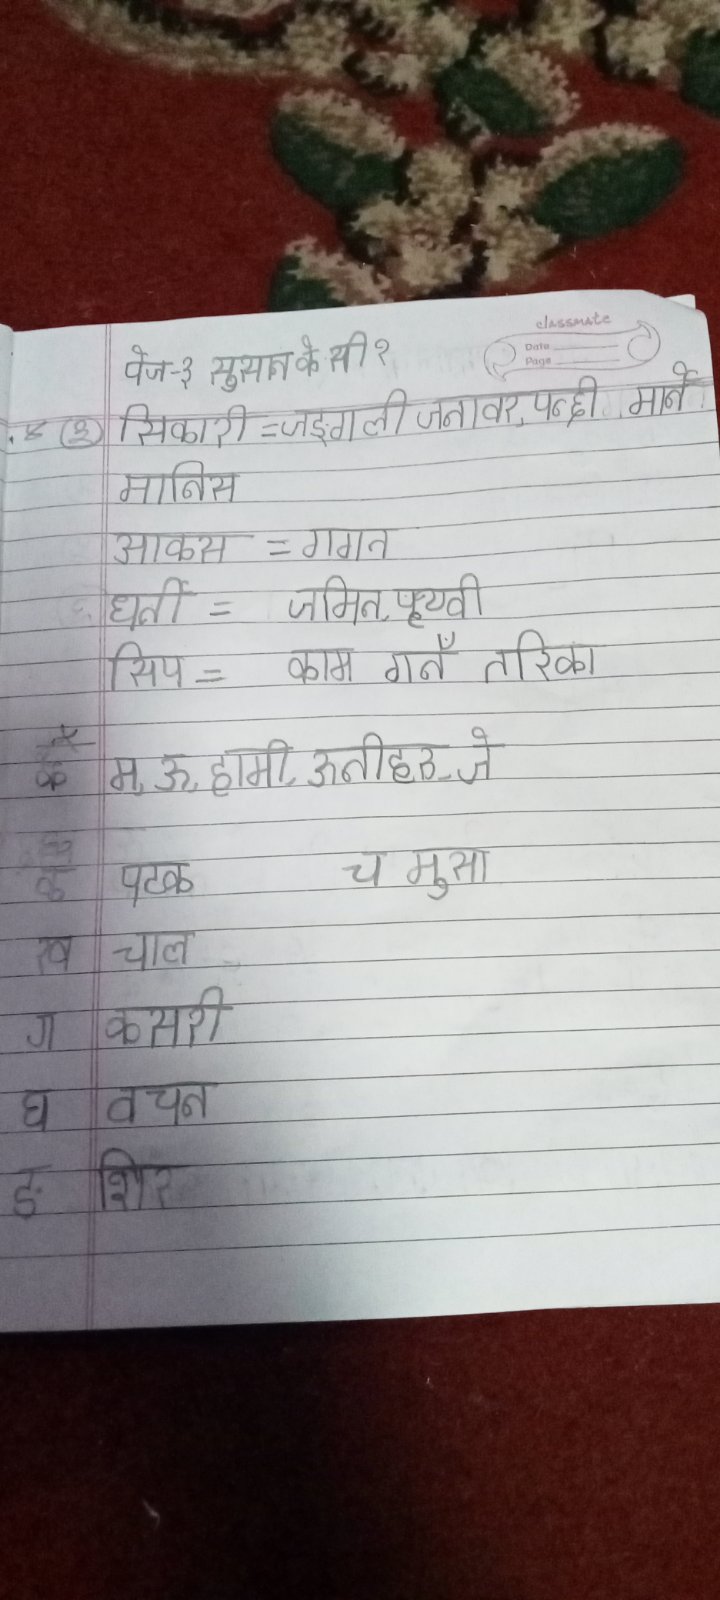 classmate
Date
Page
पेज-३ सुसान के सी ?
(३) सिकारी = जङ्गली जनावर, पन्छी मार्ने
मानिस
आकस = गगन
धर्ती = जमिन, पृथ्वी
सिप = काम गर्ने तरिका
क म, ऊ, हामी, ऊनीहरु, जे
क पटक च मुसा
ख चाल
ग कसरी
घ वचन
ङ शिर